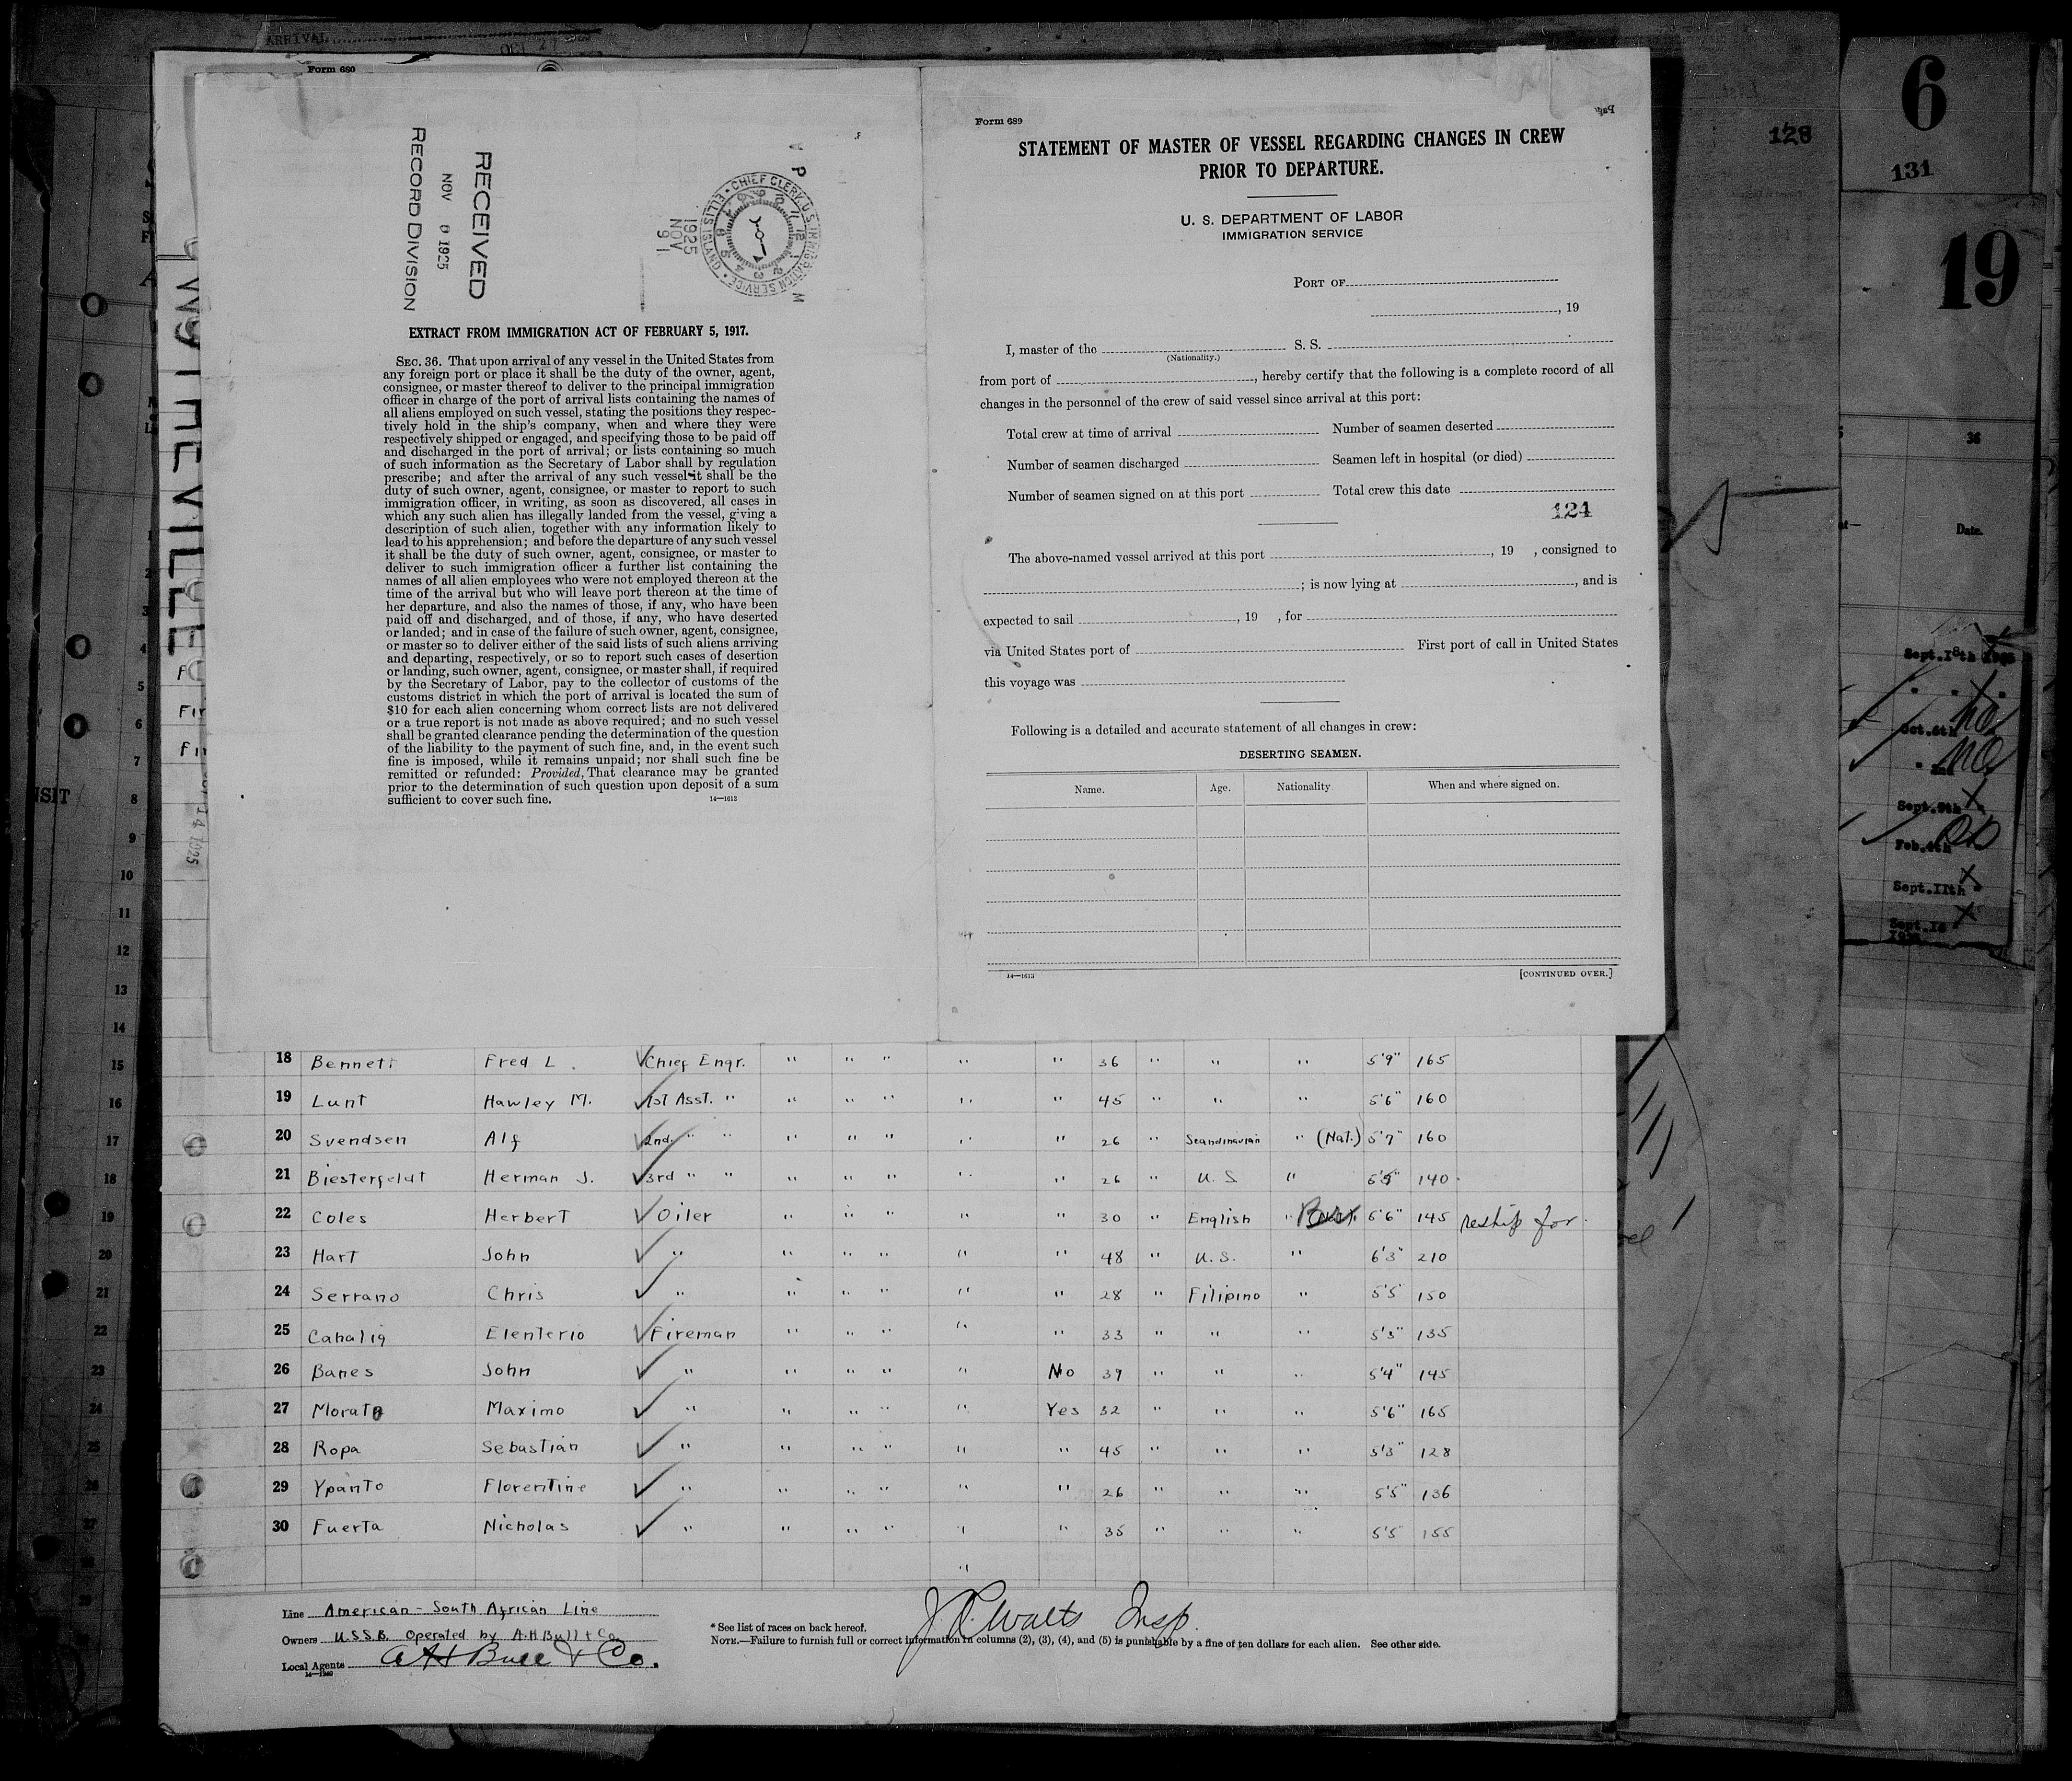 ARRIVAL
OCT 27
Form 680
RECEIVED
NOV 9 1925
RECORD DIVISION
CHIEF CLERK, U.S. IMMIGRATION SERVICE
ELLIS ISLAND
1925
NOV
9
P M
EXTRACT FROM IMMIGRATION ACT OF FEBRUARY 5, 1917.
SEC. 36. That upon arrival of any vessel in the United States from
any foreign port or place it shall be the duty of the owner, agent,
consignee, or master thereof to deliver to the principal immigration
officer in charge of the port of arrival lists containing the names of
all aliens employed on such vessel, stating the positions they respec-
tively hold in the ship's company, when and where they were
respectively shipped or engaged, and specifying those to be paid off
and discharged in the port of arrival; or lists containing so much
of such information as the Secretary of Labor shall by regulation
prescribe; and after the arrival of any such vessel it shall be the
duty of such owner, agent, consignee, or master to report to such
immigration officer, in writing, as soon as discovered, all cases in
which any such alien has illegally landed from the vessel, giving a
description of such alien, together with any information likely to
lead to his apprehension; and before the departure of any such vessel
it shall be the duty of such owner, agent, consignee, or master to
deliver to such immigration officer a further list containing the
names of all alien employees who were not employed thereon at the
time of the arrival but who will leave port thereon at the time of
her departure, and also the names of those, if any, who have been
paid off and discharged, and of those, if any, who have deserted
or landed; and in case of the failure of such owner, agent, consignee,
or master so to deliver either of the said lists of such aliens arriving
and departing, respectively, or so to report such cases of desertion
or landing, such owner, agent, consignee, or master shall, if required
by the Secretary of Labor, pay to the collector of customs of the
customs district in which the port of arrival is located the sum of
$10 for each alien concerning whom correct lists are not delivered
or a true report is not made as above required; and no such vessel
shall be granted clearance pending the determination of the question
of the liability to the payment of such fine, and, in the event such
fine is imposed, while it remains unpaid; nor shall such fine be
remitted or refunded: Provided, That clearance may be granted
prior to the determination of such question upon deposit of a sum
sufficient to cover such fine. 14—1613
Form 689
STATEMENT OF MASTER OF VESSEL REGARDING CHANGES IN CREW
PRIOR TO DEPARTURE.
U. S. DEPARTMENT OF LABOR
IMMIGRATION SERVICE
PORT OF
, 19
I, master of the S. S.
(Nationality.)
from port of , hereby certify that the following is a complete record of all
changes in the personnel of the crew of said vessel since arrival at this port:
Total crew at time of arrival Number of seamen deserted
Number of seamen discharged Seamen left in hospital (or died)
Number of seamen signed on at this port Total crew this date
124
The above-named vessel arrived at this port , 19 , consigned to
; is now lying at , and is
expected to sail , 19 , for
via United States port of First port of call in United States
this voyage was
Following is a detailed and accurate statement of all changes in crew:
DESERTING SEAMEN.
Name. Age. Nationality When and where signed on.
14—1613 [CONTINUED OVER.]
18 Bennett Fred L. Chief Engr. " " " " " 36 " " " 5'9" 165
19 Lunt Hawley M. 1st Asst. " " " " " " 45 " " " 5'6" 160
20 Svendsen Alf 2nd " " " " " " " 26 " Scandinavian " (Nat.) 5'7" 160
21 Biesterfeldt Herman J. 3rd " " " " " " " 26 " U.S. " 5'5" 140
22 Coles Herbert Oiler " " " " " 30 " English " Brit. 5'6" 145 reship for
23 Hart John " " " " " " 48 " U.S. " 6'3" 210
24 Serrano Chris " " " " " " 28 " Filipino " 5'5 150
25 Cahalig Elenterio Fireman " " " " " 33 " " " 5'3" 135
26 Banes John " " " " " No 39 " " " 5'4" 145
27 Morato Maximo " " " " " Yes 32 " " " 5'6" 165
28 Ropa Sebastian " " " " " " 45 " " " 5'3" 128
29 Ypanto Florentine " " " " " " 26 " " " 5'5" 136
30 Fuerta Nicholas " " " " " " 35 " " " 5'5" 155
"
Line American - South African Line
Owners U.S.S.B. Operated by A.H Bull & Co.
Local Agents A H Bull & Co.
14—1240
J.P. Walts Insp.
* See list of races on back hereof.
NOTE.—Failure to furnish full or correct information in columns (2), (3), (4), and (5) is punishable by a fine of ten dollars for each alien. See other side.
128
6
131
19
36
Date.
Sept.18th
Oct.6th
no
" 2nd
no
Sept.9th
Feb.4th
Sept.11th